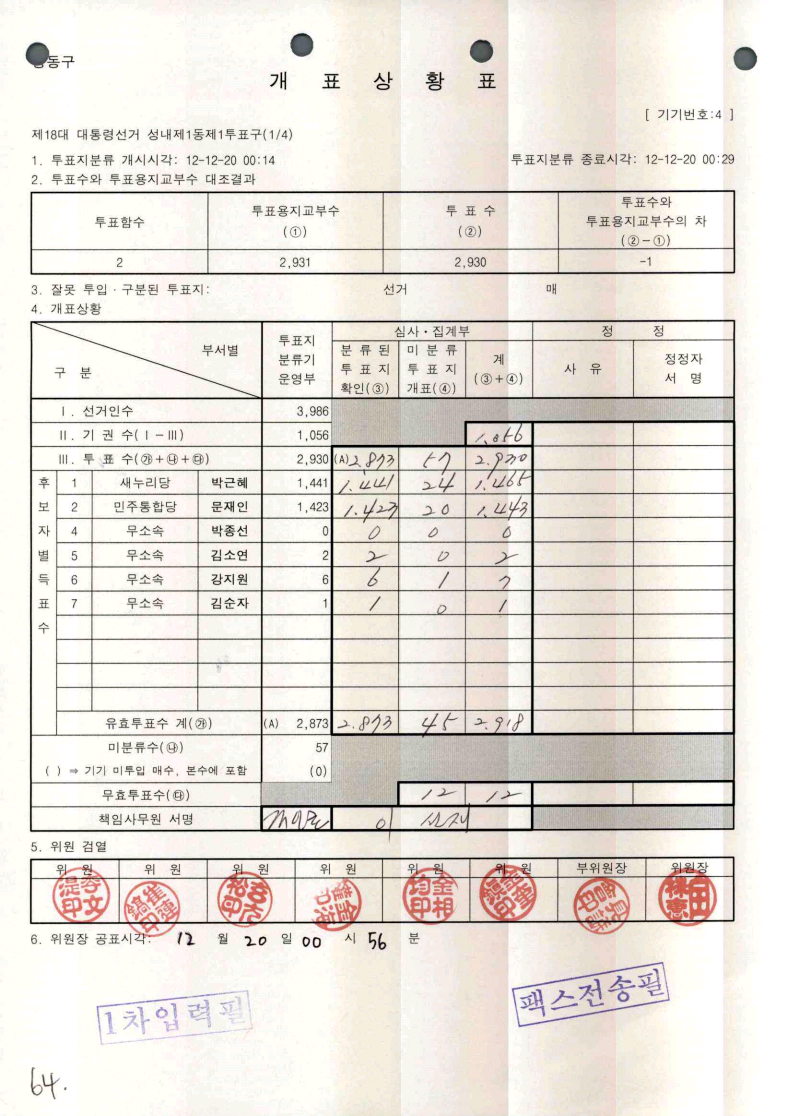 동구
개 표 상 황 표
[ 기기번호:4 ]
제18대 대통령선거 성내제1동제1투표구(1/4)
1. 투표지분류 개시시각: 12-12-20 00:14 투표지분류 종료시각: 12-12-20 00:29
2. 투표수와 투표용지교부수 대조결과
투표함수 투표용지교부수 (①) 투 표 수 (②) 투표수와 투표용지교부수의 차 (②-①)
2 2,931 2,930 -1
3. 잘못 투입·구분된 투표지: 선거 매
4. 개표상황
구 분 부서별 투표지 분류기 운영부 심사·집계부 정 정
분 류 된 투 표 지 확인(③) 미 분 류 투 표 지 개표(④) 계 (③+④) 사 유 정정자 서 명
Ⅰ. 선거인수 3,986
Ⅱ. 기 권 수(Ⅰ-Ⅲ) 1,056 1,056
Ⅲ. 투 표 수(㉮+㉯+㉰) 2,930 (A) 2.873 57 2.930
후보자별득표수
1 새누리당 박근혜 1,441 1.441 24 1.465
2 민주통합당 문재인 1,423 1.423 20 1.443
4 무소속 박종선 0 0 0 0
5 무소속 김소연 2 2 0 2
6 무소속 강지원 6 6 1 7
7 무소속 김순자 1 1 0 1
유효투표수 계(㉮) (A) 2,873 2.873 45 2.918
미분류수(㉯) 57
( ) ⇒ 기기 미투입 매수, 본수에 포함 (0)
무효투표수(㉰) 12 12
책임사무원 서명
5. 위원 검열
위 원 위 원 위 원 위 원 위 원 위 원 부위원장 위원장
6. 위원장 공표시각: 12 월 20 일 00 시 56 분
1차입력필
팩스전송필
64.